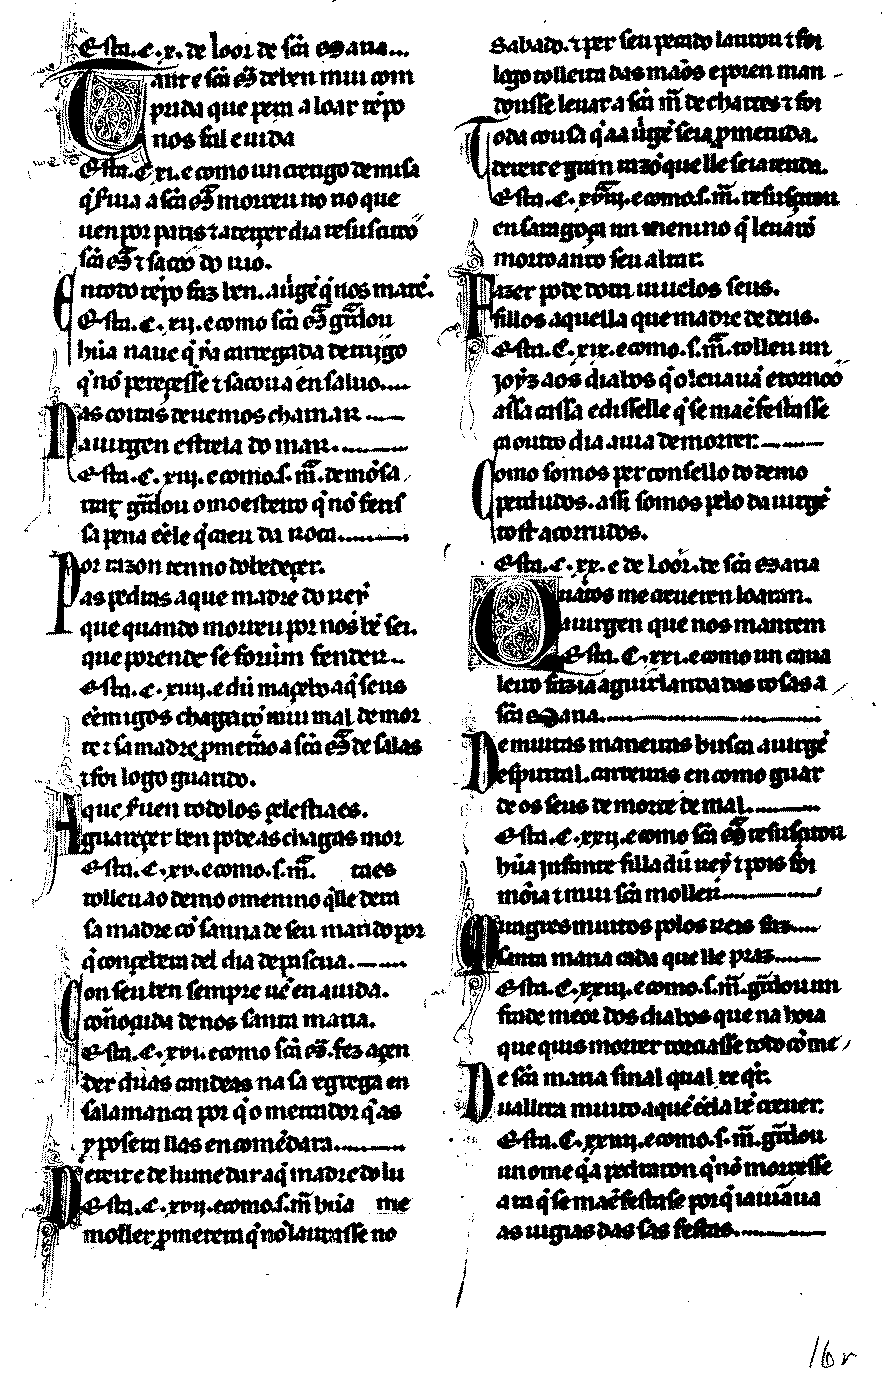 Esta .C.x. de loor de scā Maria...
Tante scā M̄ deben mui com
prida que pera a loar tēpo
nos fal e uida
Esta.C.xi.e como un crerigo de missa
q̄ fiia a scā M̄ morreu no rio que
uen por paris τ a terçer dia resuscitoo
scā M̄ τ sacoo do rio.
En todo tēpo faz ben. a uirgē q̄ nos mātē.
Esta.C.xij.e como scā M̄ guiou
hūa naue q̄ ýa carregada de trijgo
q̄ nō pereçesse τ sacoua en saluo....
Nas coitas deuemos chamar
a uirgen estrela do mar.
Esta.C.xiij.e como.s.m̄.
guiou o moesteiro q̄ nō fezess
sa pena
Por razon tenno dobedeçer.
as pedras a que madre do rey
que quando morreu por nos bē sei.
que porende se foron fender..
Esta.C.xiiij.e dū mançebo a q̄ seus
ēemigos chagarō mui mal de mor
te τ sa madre ꝓmeteo a scā M̄ de salas
τ foi logo guarido.
A que fuen todolos çelestiaes.
guareçer ben pode as chagas mor
Esta.C.xv.e como.s.m̄. taes
tolleu ao demo o menino q̄ lle dera
sa madre cō sanna de seu marido por
q̄ conçebera del dia de pascua.
Con seu ben sempre uē en aiuda.
connoçuda de nos santa maria.
Esta.C.xvi.e como scā M̄.fez açen
der duas candeas na sa egreja en
salamanca por q̄ o mercador q̄ as
y posera llas encomēdara.
Dereite de lume dar a q̄ madre do lu
Esta.C.xvij.e como.s.m̄ hūa me
moller ꝓmetera q̄ nō laurasse no
Sabado. τ per seu pecado laurou τ foi
logo tolleita das maōs e poren man
dousse leuar a scā m̄ de chartes τ foi
Toda cousa q̄ aa uirgē seia ꝓmetuda.
dereite e gran razō que lle seia renduda.
Esta.C.xviij.e como.s.m̄.resuscitou
en saragoça un menino q̄ leuarō
morto anto seu altar.
Fazer pode dom uiuelos seus.
fillos aquella que madre de deus.
Esta.C.xix.e como.s.m̄.tolleu un
aos diabos q̄ o leuauā e tornoo
assa cassa e disselle q̄ se maēfestasse
ca outro dia auia de morrer.
Como somos per consello do demo
perdudos. assi somos pelo da uirgē
tost acorrudos.
Esta.C.xx. e de loor.de scā Maria
Quantos me creueren loaran.
a uirgen que nos mantem
Esta.C.xxi.e como un caua
leiro fazia a guirlanda das rosas a
scā Maria.
De muitas maneiras busca a uirgē
esperital. carreiras en como guar
de os seus de morte de mal.
Esta.C.xxij.e como scā M̄ resuscitou
hūa jnfante filla dū rey τ pois foi
mōia τ mui scā moller.
Miragres muitos pelos reis faz
santa maria cada que lle praz.
Esta.C.xxiij.e como.s.m̄.guiou un
frade meor dos diabos que na hora
que quis morrer torciasse todo cō me
De scā maria sinal qual xe q̄r.
ualluira muito a que ēela bē creuer.
Esta.C.xxiiij.e como.s.m̄.guiou
un ome q̄ a pedraron q̄ nō morresse
ata q̄ se maēfestase por q̄ iaiuūaua
as uigias das sas festas.
16r